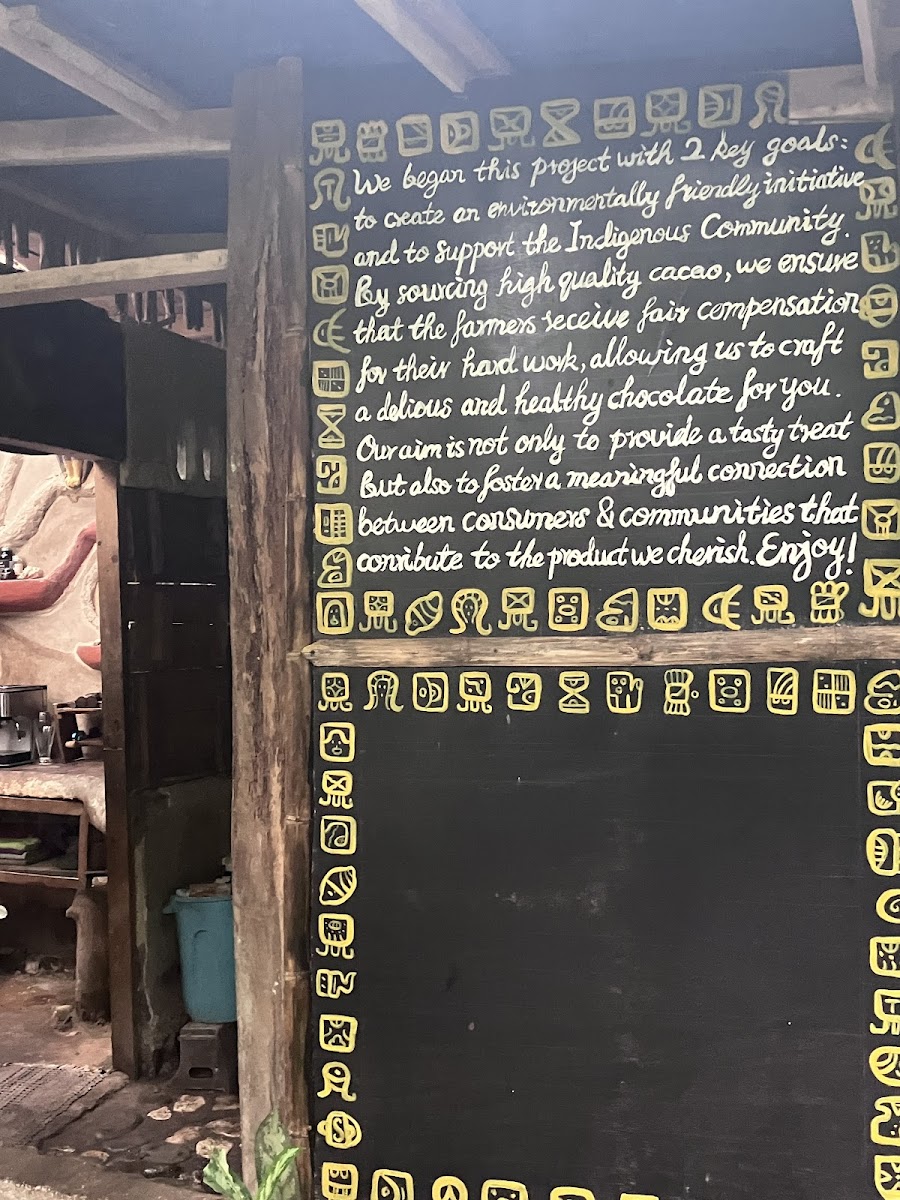 We began this project with 2 key goals:
to create an environmentally friendly initiative
and to support the Indigenous Community.
By sourcing high quality cacao, we ensure
that the farmers receive fair compensation
for their hard work, allowing us to craft
a delious and healthy chocolate for you.
Our aim is not only to provide a tasty treat
but also to foster a meaningful connection
between consumers & communities that
conribute to the product we cherish. Enjoy!